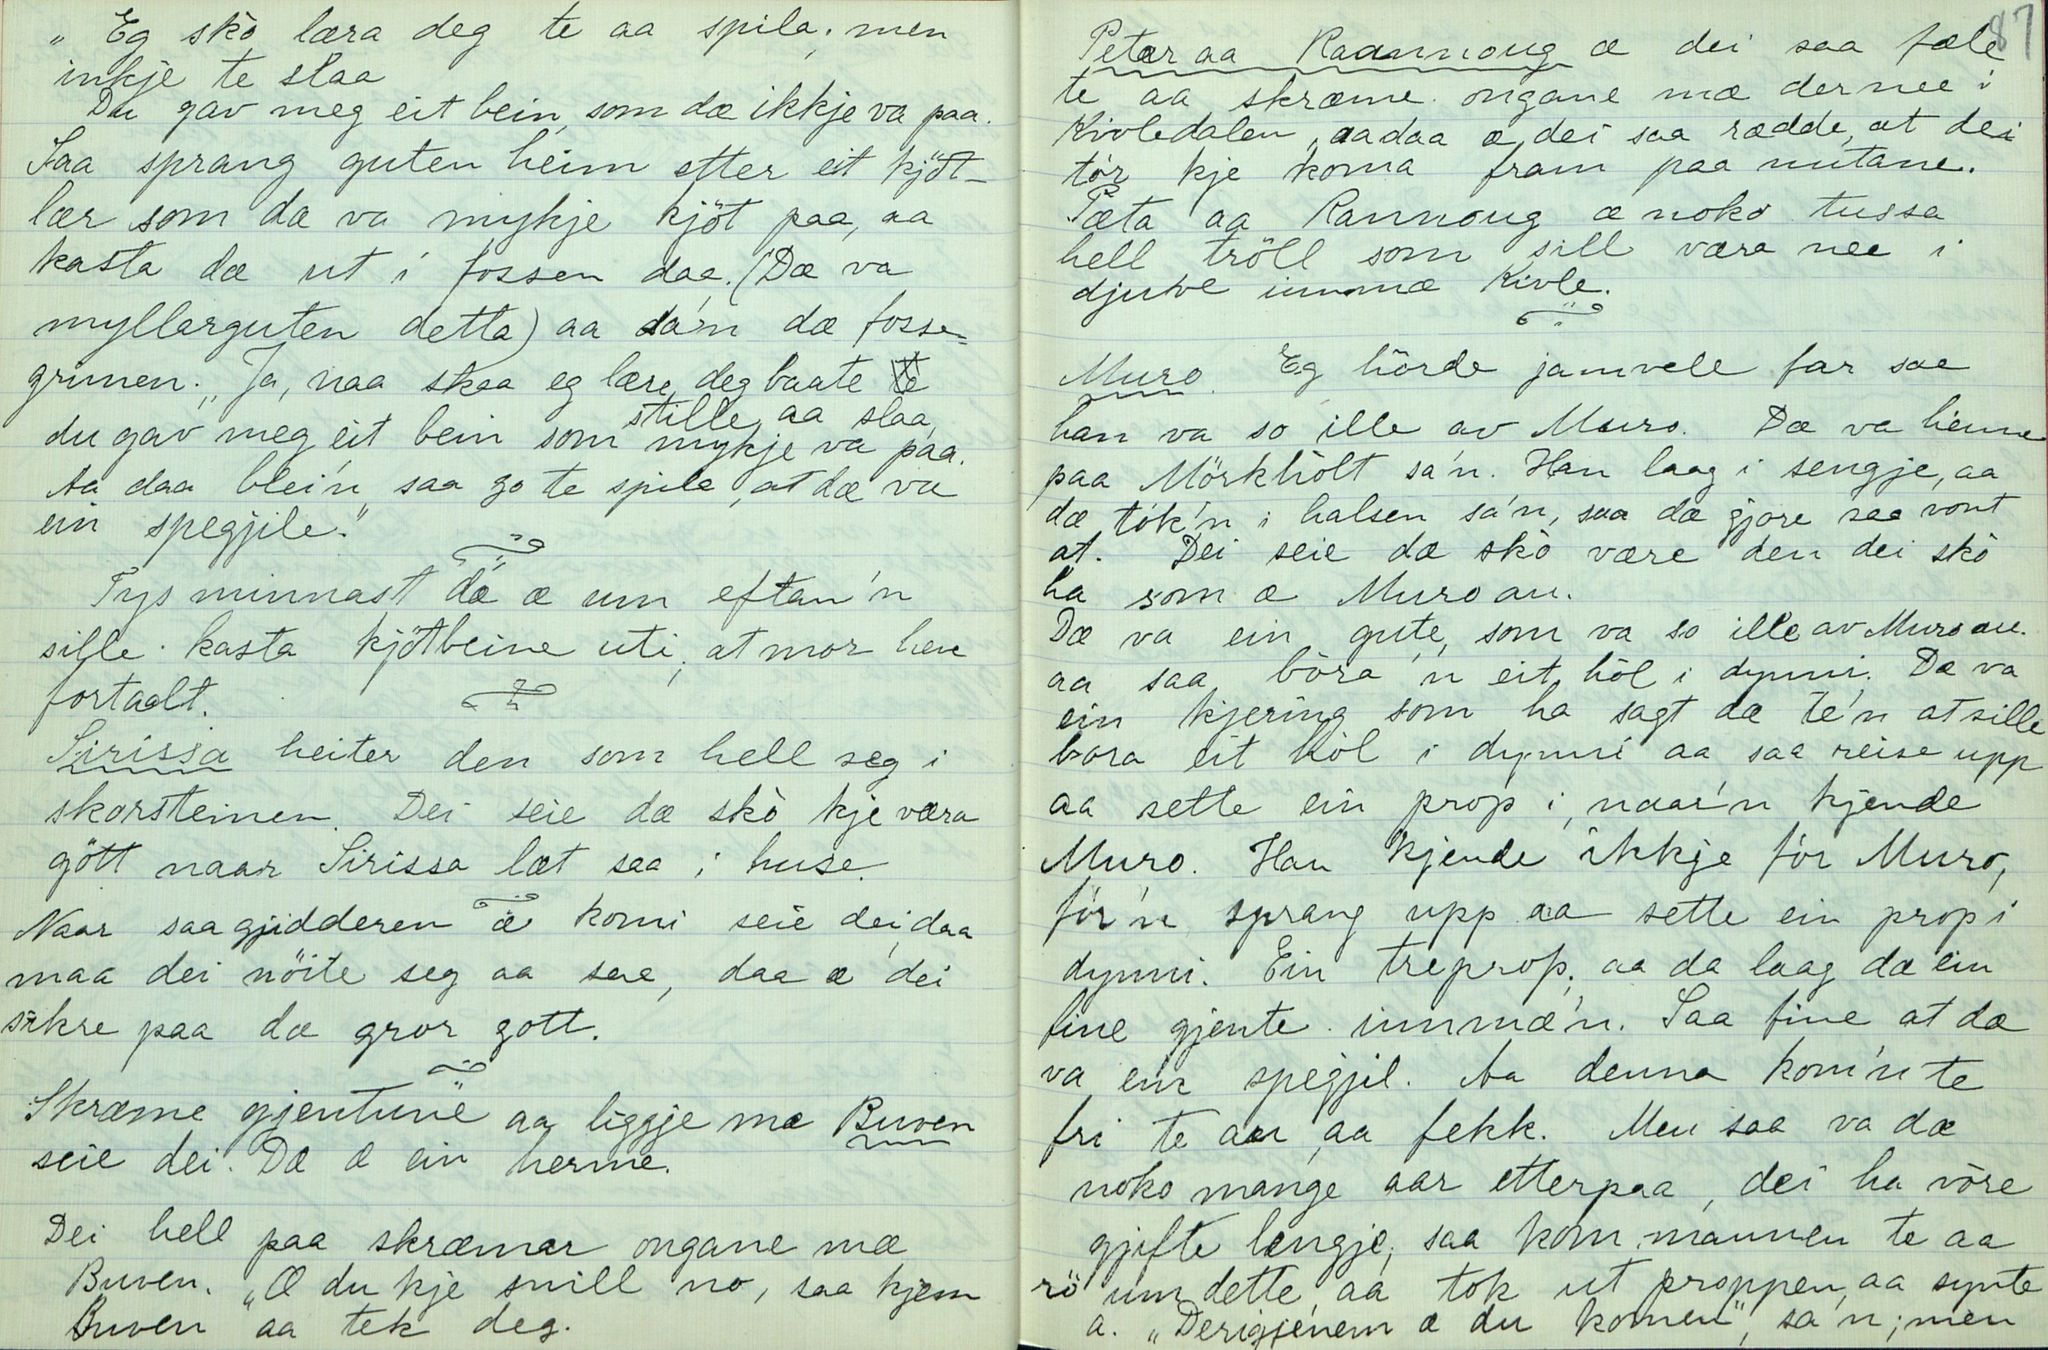 „Eg skò læra deg te aa spila, men
inkje te slaa
Du gav meg eit bein, som dæ ikkje va paa.
Saa sprang guten heim etter eit kjöt-
lær som dæ va mykje kjöt paa, aa
kasta dæ ut i fossen daa. (Dæ va
myllarguten detta) aa sa'n dæ fosse-
grimen: „Ja, naa skaa eg lære deg baate te
stille aa slaa,
du gav meg eit bein som mykje va paa.
Aa daa blei'n saa go te spila, at dæ va
ein spegjile."
Tys minnast dá æ um eftan'n
sille kasta kjötbeine uti, at mor hev
fortaalt.
Sirissa heiter den som hell seg i
skorsteinen. Dei seie dæ skò kje væra
gött naar Sirissa læt saa i huse.
Naar saagjidderen æ komi seie dei, daa
maa dei nöite seg aa saa, daa æ dei
sikre paa dæ gror gott.
Skræme gjentune aa liggje mæ Buven
seie dei. Dæ æ ein herme.
Dei hell paa skræmar ongane mæ
Buven. „Æ du kje snill no, saa kjem
Buven aa tek deg.
87
Petar aa Raannoug æ dei saa fæle
te aa skræme ongane mæ dernee i
Kivledalen, aa daa æ dei saa rædde, at dei
tör kje koma fram paa nutane.
Pæta aa Rannoug æ noko tussa
hell tröll som sill være nee i
djuve innmæ Kivle.
Muro. Eg hörde jamvele far sae
han va so ille av Muro. Dæ va heime
paa Mörkhòlt sa'n. Han laag i sengje, aa
dæ tòk'n i halsen sa'n, saa dæ gjore saa vont
at. Dei seie dæ skò være den dei skò
ha som æ Muro au.
Dæ va ein gute, som va so ille av Muro au.
aa saa bòra'n eit hòl i dynni. Dæ va
ein kjering som ha sagt dæ te'n at sille
bora eit hòl i dynni aa saa reise upp
aa sette ein prop i, naar'n kjende
Muro. Han kjende ikkje för Muro,
för'n sprang upp aa sette ein prop i
dynni. Ein treprop, aa da laag dæ ein
fine gjente innmæ'n. Saa fine at dæ
va ein spegjil. Aa denna kom'n te
fri te au, aa fekk. Men saa va dæ
noko mange aar etterpaa, dei ha vòre
gjifte lengje, saa kom mannen te aa
rö um dette, aa tok ut proppen, aa synte
a. „Derigjenem æ du komen", sa'n; men